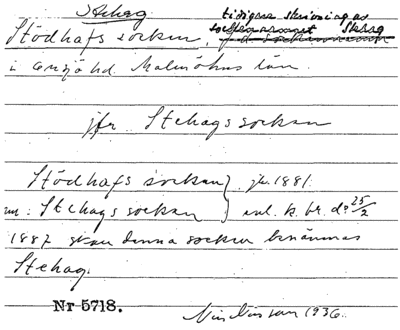 Stehag
tidigare skrivning av
Stödhafs socken, sockennamnet Skrag
i Onsjö hd. Malmöhus län.
jfr Stehags socken
Stödhafs socken jb. 1881.
nu: Stehags socken enl. k. br. d. 25/2
1887 skall denna socken benämnas
Stehag.
Nr 5718.
Nils Nilsson 1936.